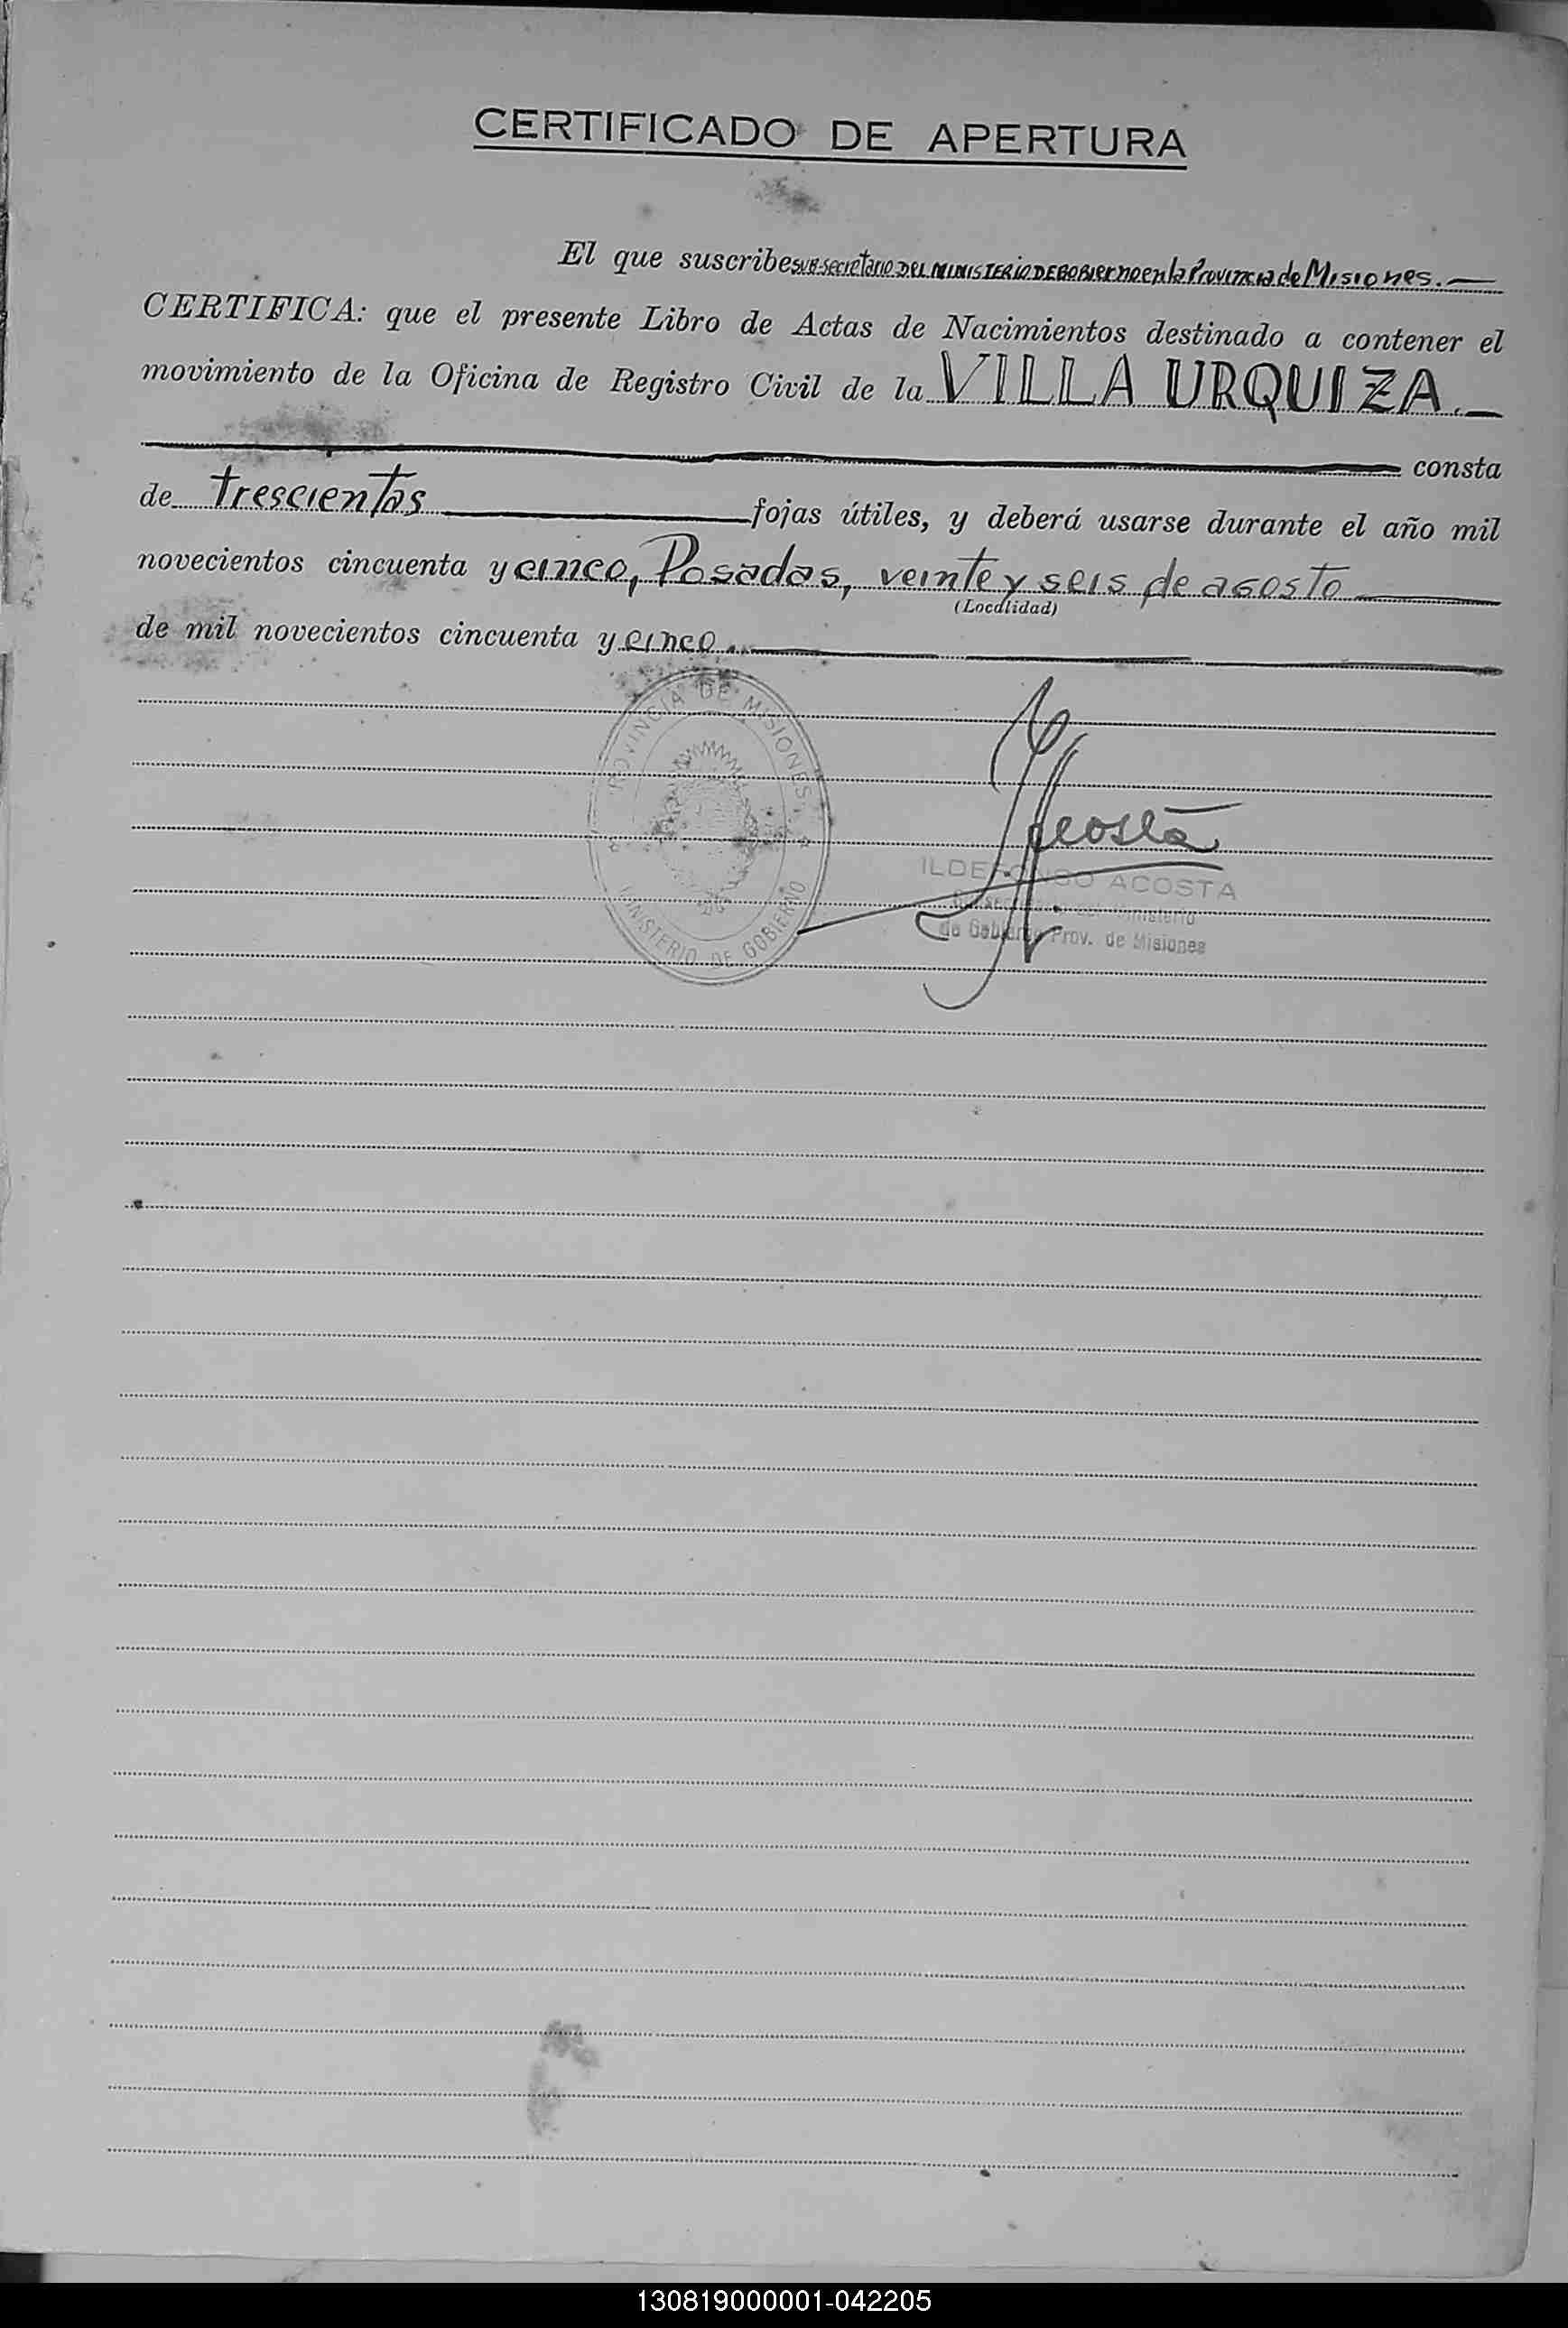 CERTIFICADO DE APERTURA
El que suscribe SUB-Secretario DEL MINISTERIO DE GOBIERNO en la Provincia de Misiones.—
CERTIFICA: que el presente Libro de Actas de Nacimientos destinado a contener el
movimiento de la Oficina de Registro Civil de la VILLA URQUIZA.—
consta
de trescientas fojas útiles, y deberá usarse durante el año mil
novecientos cincuenta y cinco, Posadas, veinte y seis de agosto
(Localidad)
de mil novecientos cincuenta y cinco.
PROVINCIA DE MISIONES
MINISTERIO DE GOBIERNO
Acosta
ILDEFONSO ACOSTA
Subsecretario del Ministerio
de Gobierno Prov. de Misiones
130819000001-042205